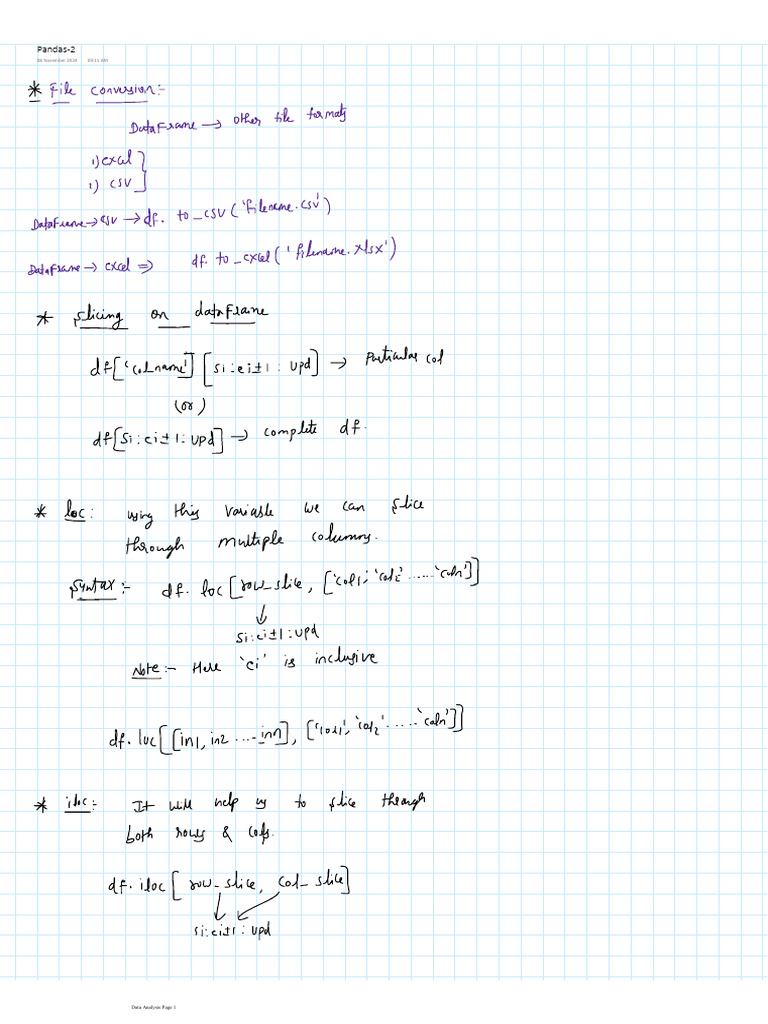 Pandas-2
09:11 AM
* File conversion:-
DataFrame → other file formats
1) excel
1) CSV
DataFrame → csv → df. to_csv('filename.csv')
DataFrame → excel ⇒ df. to_excel('filename.xlsx')
* slicing on dataFrame
df['colname'] [si:ei±1: upd] → Particular col
(or)
df[si:ei±1:upd] → complete df.
* loc: using this variable we can slice
through multiple columns.
syntax:- df. loc[row_slice, ['col1', 'col2' ...... 'coln']]
↓
si:ei±1:upd
Note:- Here 'ei' is inclusive
df. loc[[in1, in2 ....inn], ['col1', 'col2' ...... 'coln']]
* iloc: It will help us to slice through
both rows & cols.
df. iloc[row_slice, col_slice]
si:ei±1: upd
Data Analysis Page 1